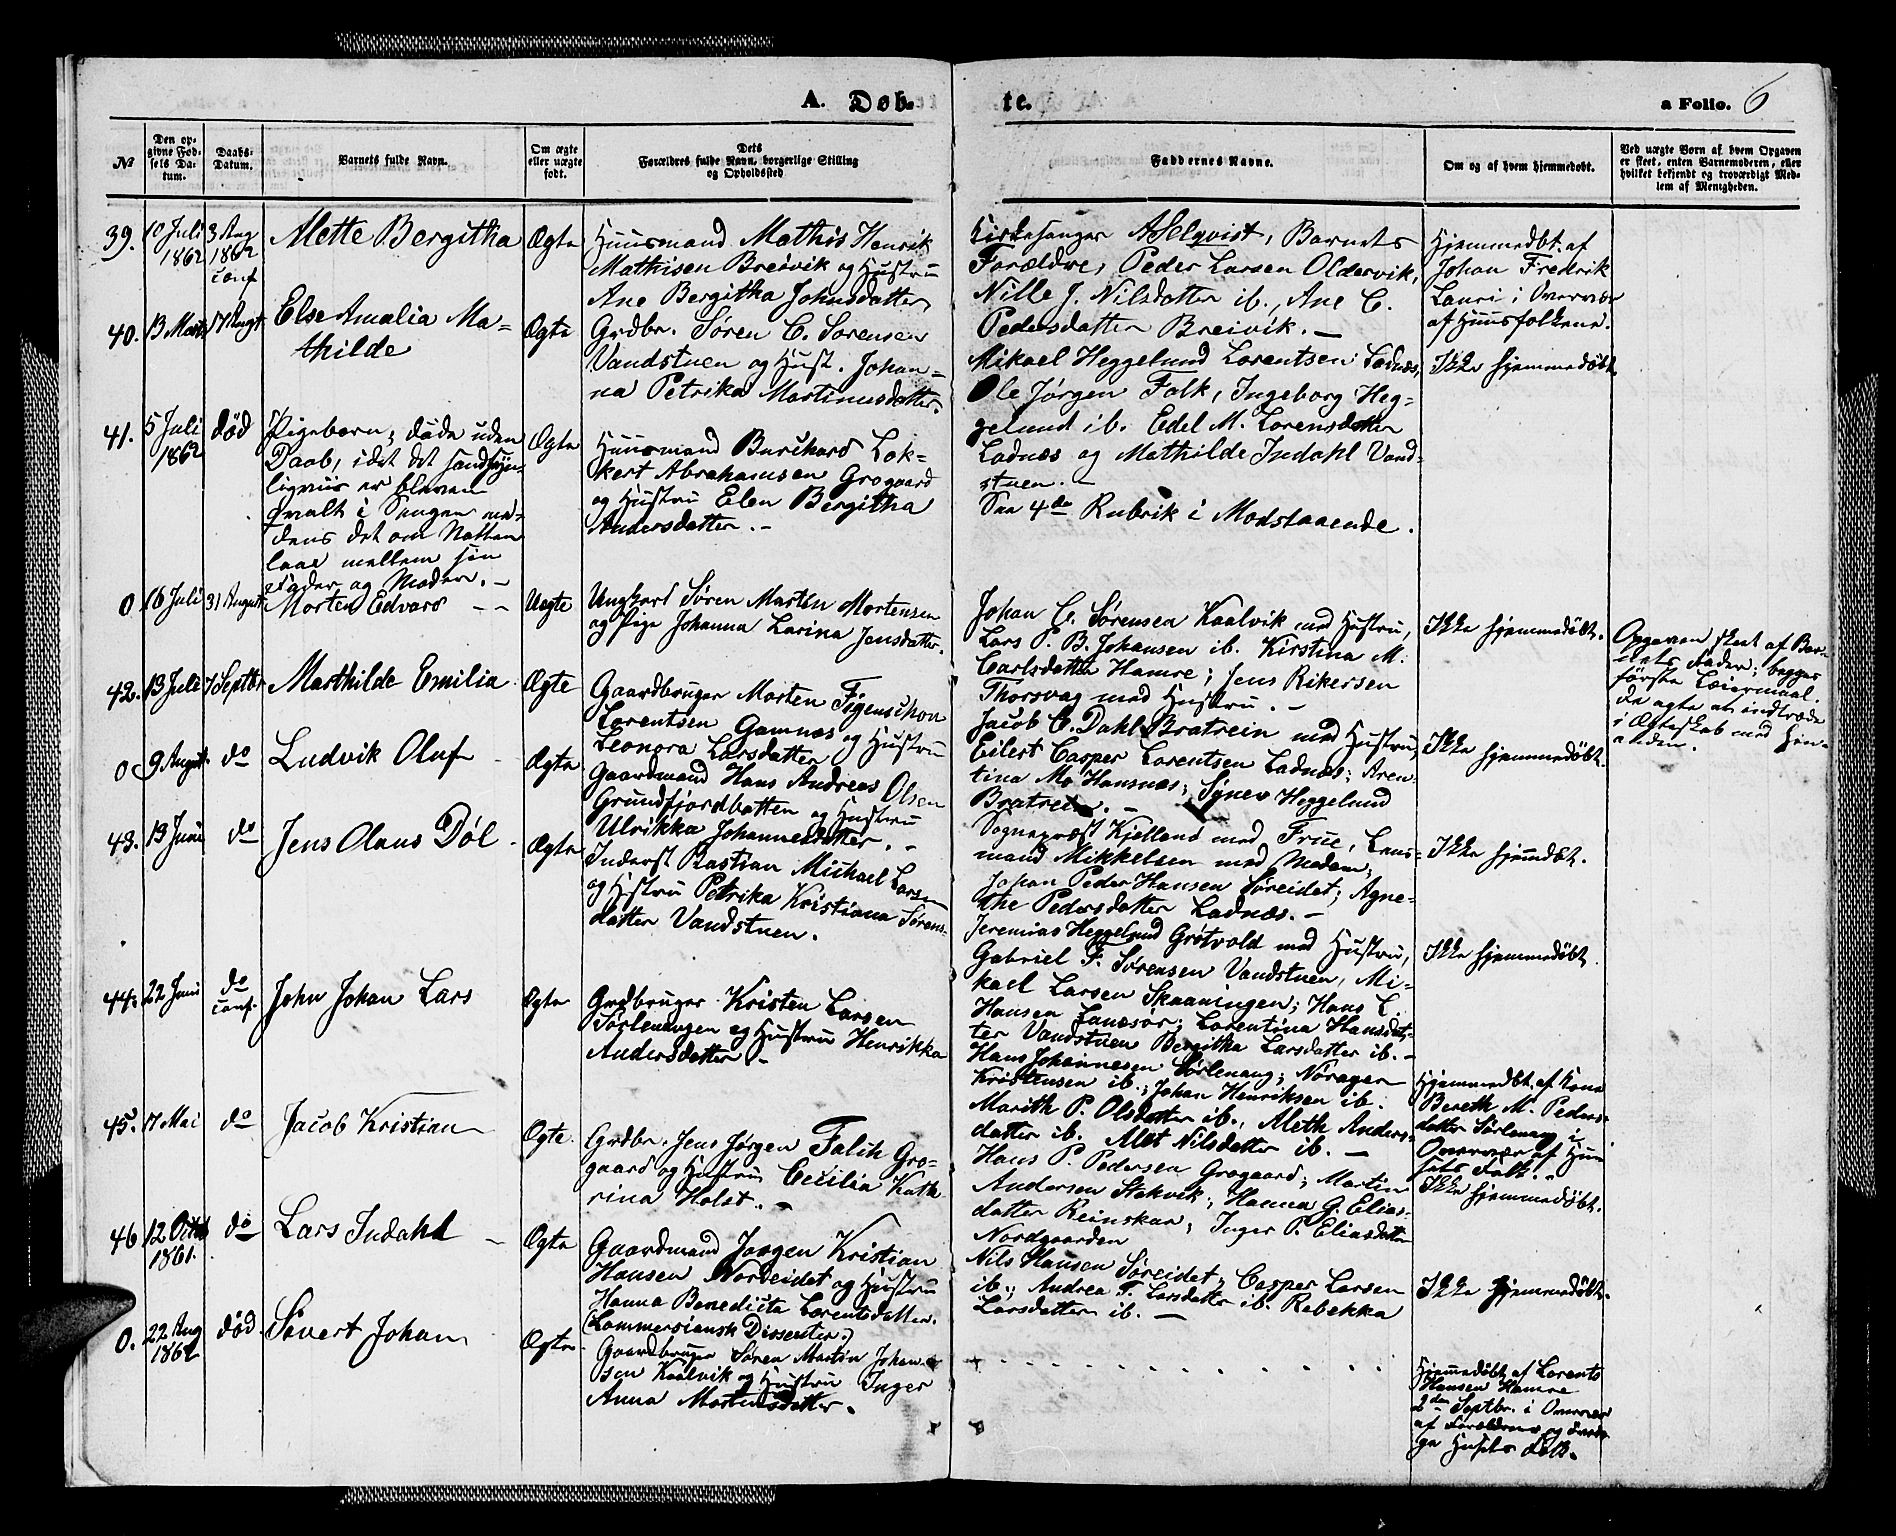 A. Døb-
te.
a Folio. 6
No
Den op-
givne Fød-
sels Da-
tum.
Daabs-
Datum.
Barnets fulde Navn.
Om ægte
eller uægte
født.
Dets
Forældres fulde Navn, borgerlige Stilling
og Opholdssted
Faddernes Navne.
Om og af hvem hjemmedøbt.
Ved uægte Børn af hvem Opgaven
er skeet, enten Barnemoderen, eller
hvilket bekjendt og troværdigt Med-
lem af Menigheden.
39.
10 Juli
1862
3 Aug
1862
conf
Alette Bergitha
Ægte
Huusmand Mathis Henrik
Mathisen Breivik og Hustru
Ane Bergitha Johnsdatter
Kirkesanger ASelqvist, Barnets
Forældre, Peder Larsen Oldervik,
Nille J. Nilsdatter ib., Ane C.
Pedersdatter Breivik. —
Hjemmedbt. af
Johan Fredrik
Lauri i Overvær
af Huusfolkene.
40.
13 Marts
17 Augt
Else Amalia Ma-
thilde
Ægte
Grdbr. Søren C. Sørensen
Vandstuen og Hust. Johan-
na Petrika Martinusdatter.
Mikael Heggelund Lorentsen Ladnæs,
Ole Jørgen Falk, Ingeborg Heg-
gelund ib. Edel M. Lorensdatter
Ladnæs og Mathilde Indahl Vand-
stuen. —
Ikke hjemmedøbt
41.
5 Juli
1862
død
Pigebarn, døde uden
Daab, idet det sandsyn-
ligviis er bleven
qvalt i Sengen me-
dens det om Natten
laae mellem sin
Fader og Moder. —
Ægte
Huusmand Burchard Lok-
kert Abrahamsen Grogaard
og Hustru Elen Bergitha
Andersdatter. —
See 4de Rubrik i Modstaaende.
0
16 Juli
31 August
Morten Edvard — —
Uægte
Ungkarl Søren Martin Mortensen
og Pige Johanna Larina Jensdatter.
Johan C. Sørensen Kaalvik med Hustru,
Lars P. B. Johansen ib. Kirstina M.
Carlsdatter Hamre; Jens Rikersen
Thorsvag med Hustru. —
Ikke hjemmedøbt.
Opgaven skeet af Bar-
nets Fader; begges
første Leiermaal.
De agte at indtræde
i Ægteskab med hin-
anden.
42.
13 Juli
7 Septbr
Marthilde Emilia
Ægte
Gaardbruger Morten Figenschou
Lorentsen Gamnæs og Hustru
Leonora Larsdatter
Jacob C. Dahl Bratrein med Hustru,
Eilert Casper Lorentsen Ladnæs; Aren-
tina Mo Hansnæs; Synev Heggelund
Bratrein. —
Ikke hjemmedøbt.
0
9 August
do
Ludvik Oluf
Ægte
Gaardmand Hans Andreas Olsen
Grundfjordbotten og Hustru
Ulrikka Johannesdatter. —
Sognepræst Kjelland med Frue, Lens-
mand Mikkelsen med Madam;
Johan Peder Hansen Søreidet; Agne-
the Pedersdatter Ladnæs. —
Ikke hjemdbt.
43.
13 Juni
do
Jens Olaus Døl
Ægte
Inderst Bastian Michael Larsen
og Hustru Petrika Kristiana Sørens-
datter Vandstuen.
Jeremias Heggelund Grøtvold med Hustru,
Gabriel F. Sørensen Vandstuen, Mi-
kael Larsen Skaaningen; Hans L.
Hansen Lanesør; Lorentina Hansdat-
ter Vandstuen Bergitha Larsdatter ib. —
Ikke hjemmedøbt.
44.
22 Juni
do
conf.
John Johan Lars
Ægte
Grdbruger Kristen Larsen
Sørlenangen og Hustru Henrikka
Andersdatter —
Hans Johannesen Sørlenang; Noragen
Kristensen ib.; Johan Henriksen ib.
Marith P. Olsdatter ib., Aleth Anders-
datter ib. Alet Nilsdatter ib. —
Hjemmedbt. af Kone
Bereth M. Peders-
datter Sørlenang i
Overvær af Huu-
sets Folk. —
45.
7 Mai
do
Jacob Kristian
Ægte.
Grdbr. Jens Jørgen Falch Gro-
gaard og Hustru Cecilia Kath
rina Holst. —
Hans P. Pedersen Grogaard; Martin
Andersen Stakvik; Hanna G. Elias-
datter Reinskar; Inger P. Eliasdatter
Nordgaarden
Ikke hjemmedøbt.
46
12 Octbr
1861.
do
Lars Indahl —
Ægte
Gaardmand Jørgen Kristian
Hansen Nordeidet og Hustru
Hanna Benedicta Lorentsdatter.
(Lammersiansk Dissenter.)
Nils Hansen Søreidet; Casper Larsen
ib.; Andrea F. Larsdatter ib. Rebekka
Larsdatter ib. —
Ikke hjemmedøbt.
0.
22 Aug
1862
død.
Sivert Johan
Ægte
Gaardbruger Søren Martin Johan-
sen Kaalvik og Hustru Inger
Anna Mortensdatter.
Hjemmedøbt af Lorents
Hansen Hamre
2den Septbr. i Overvær
af Forældrene og øvri-
ge Husets Folk.